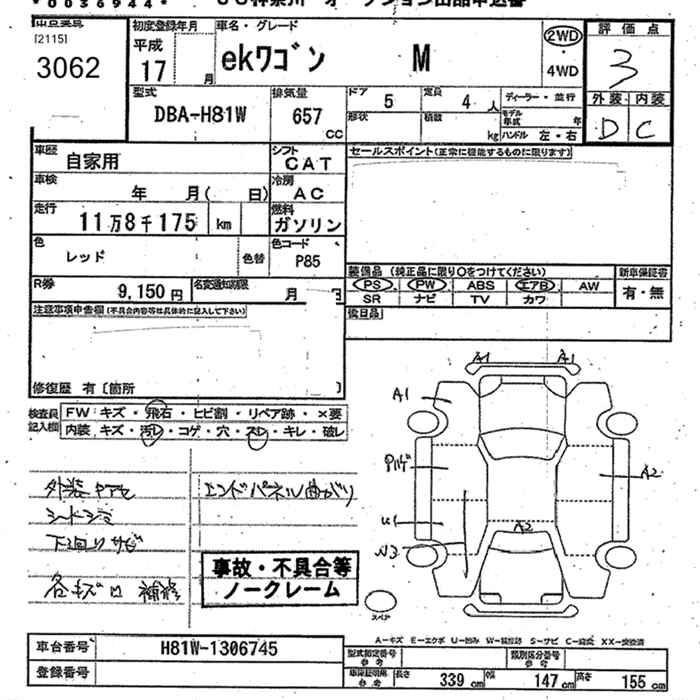 *0036944*
[2115]
3062
初度登録年月
平成
17 月
車名・グレード
ekワゴン M
2WD
4WD
評価点
3
外装 内装
D C
型式
DBA-H81W
排気量
657
CC
ドア
5
定員
4 人
ディーラー・並行
形状
積載
kg
モデル年式 年
ハンドル 左・右
車歴
自家用
シフト
CAT
セールスポイント(正常に機能するものに限ります)
車検
年 月( 日)
冷房
AC
走行
11万8千175 km
燃料
ガソリン
色
レッド
色替
色コード
P85
R券
9,150円
名変通知期限
月
装備品 (純正品に限り○をつけてください)
PS PW ABS エアB AW
SR ナビ TV カワ
新車保証書
有・無
後日品
注意事項申告欄(不具合内容等は具体的に記入して下さい)
修復歴 有〔箇所 〕
検査員記入欄
FW キズ・飛石・ヒビ割・リペア跡・×要
内装 キズ・汚レ・コゲ・穴・スレ・キレ・破レ
シートシミ
下廻りサビ
各キズ凹 補修
エンドパネル曲がり
事故・不具合等
ノークレーム
A1 A1
A1
A2
U1
A2
スペア
A-キズ E-エクボ U-凹み W-補修跡 S-サビ C-腐食 XX-交換済
車台番号
H81W-1306745
登録番号
型式指定番号
参考
類別区分番号
参考
車庫証明用
参考
長さ 339 cm 幅 147 cm 高さ 155 cm